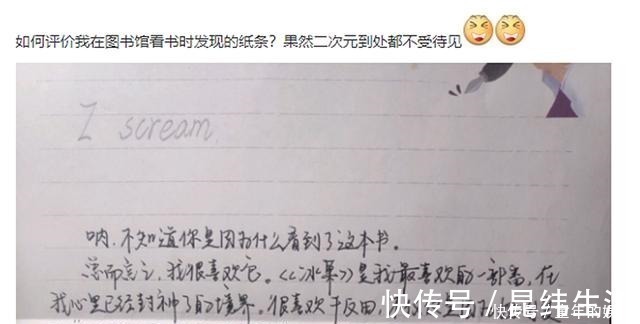 如何评价我在图书馆看书时发现的纸条？果然二次元到处都不受待见
I scream
呐，不知道你是因为什么看到了这本书。
总而言之，我很喜欢它。《冰菓》是我最喜欢的一部番，在
我心里已经封神了的境界。很喜欢千反田，
快传号 / 星纬生活
快传号 / 童年的娱